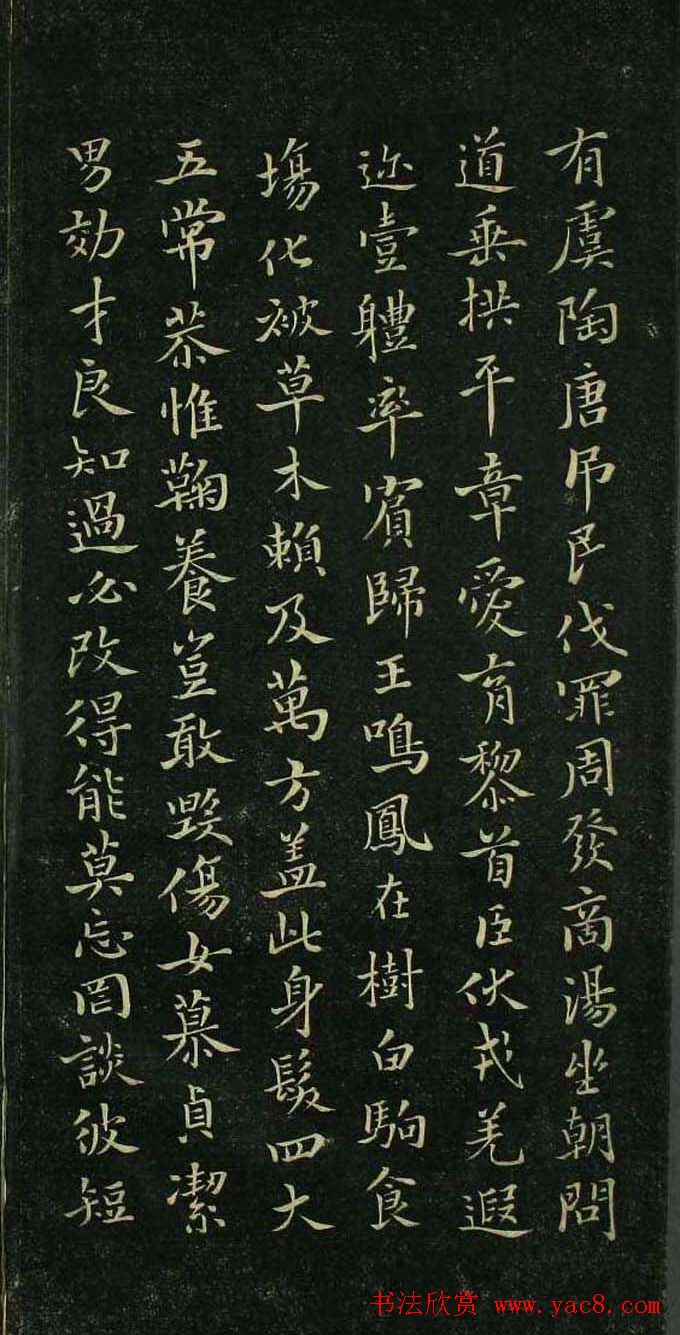 有虞陶唐吊民伐罪周發商湯坐朝問
道垂拱平章愛育黎首臣伏戎羌遐
迩壹軆率賓歸王鳴鳳在樹白駒食
場化被草木賴及萬方盖此身髮四大
五常恭惟鞠養豈敢毀傷女慕貞潔
男効才良知過必改得能莫忘罔談彼短
书法欣赏 www.yac8.com